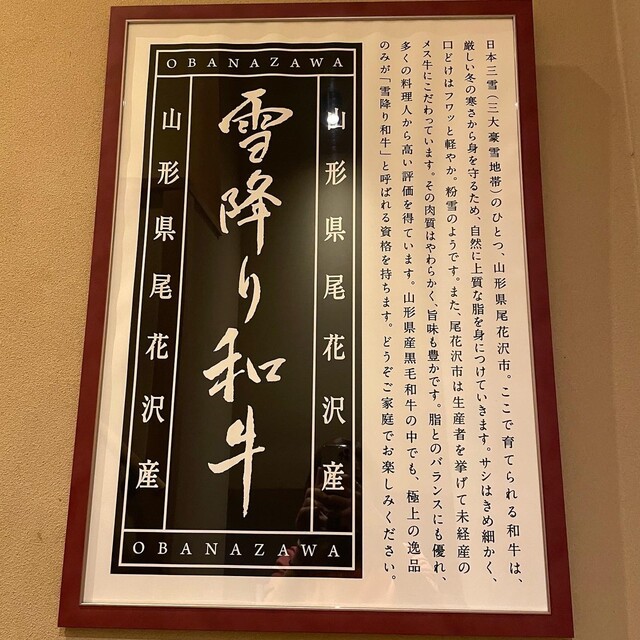 OBANAZAWA
山形県尾花沢産
雪降り和牛
山形県尾花沢産
OBANAZAWA
日本三雪(三大豪雪地帯)のひとつ、山形県尾花沢市。ここで育てられる和牛は、
厳しい冬の寒さから身を守るため、自然に上質な脂を身につけていきます。サシはきめ細かく、
口どけはフワッと軽やか。粉雪のようです。また、尾花沢市は生産者を挙げて未経産の
メス牛にこだわっています。その肉質はやわらかく、旨味も豊かです。脂とのバランスにも優れ、
多くの料理人から高い評価を得ています。山形県産黒毛和牛の中でも、極上の逸品
のみが「雪降り和牛」と呼ばれる資格を持ちます。どうぞご家庭でお楽しみください。